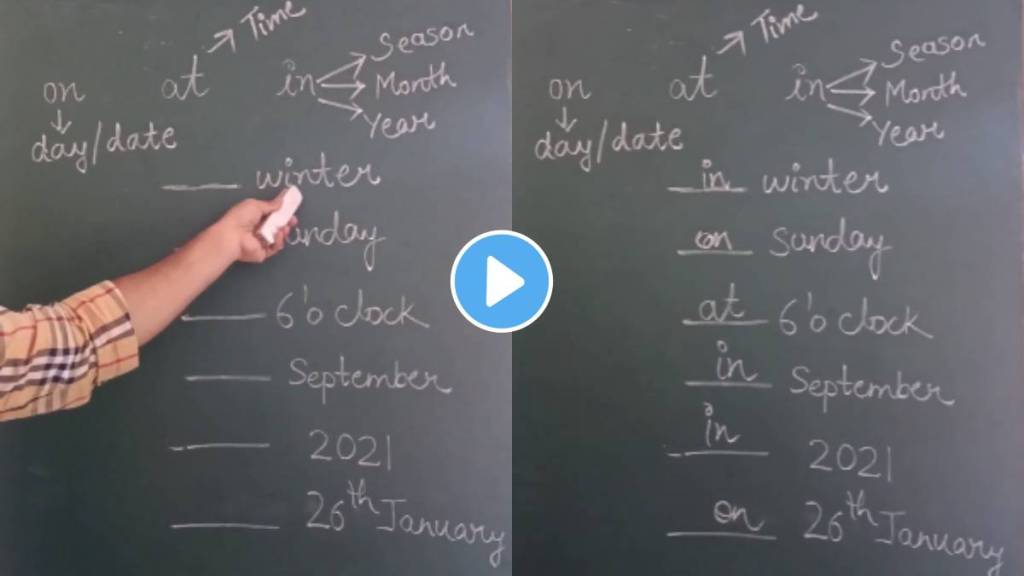 Time
on at in Season
Month
day/date Year
____ winter
unday
____ 6'o clock
____ September
____ 2021
____ 26th January
Time
on at in Season
Month
day/date Year
in winter
on Sunday
at 6'o clock
in September
in 2021
on 26th January